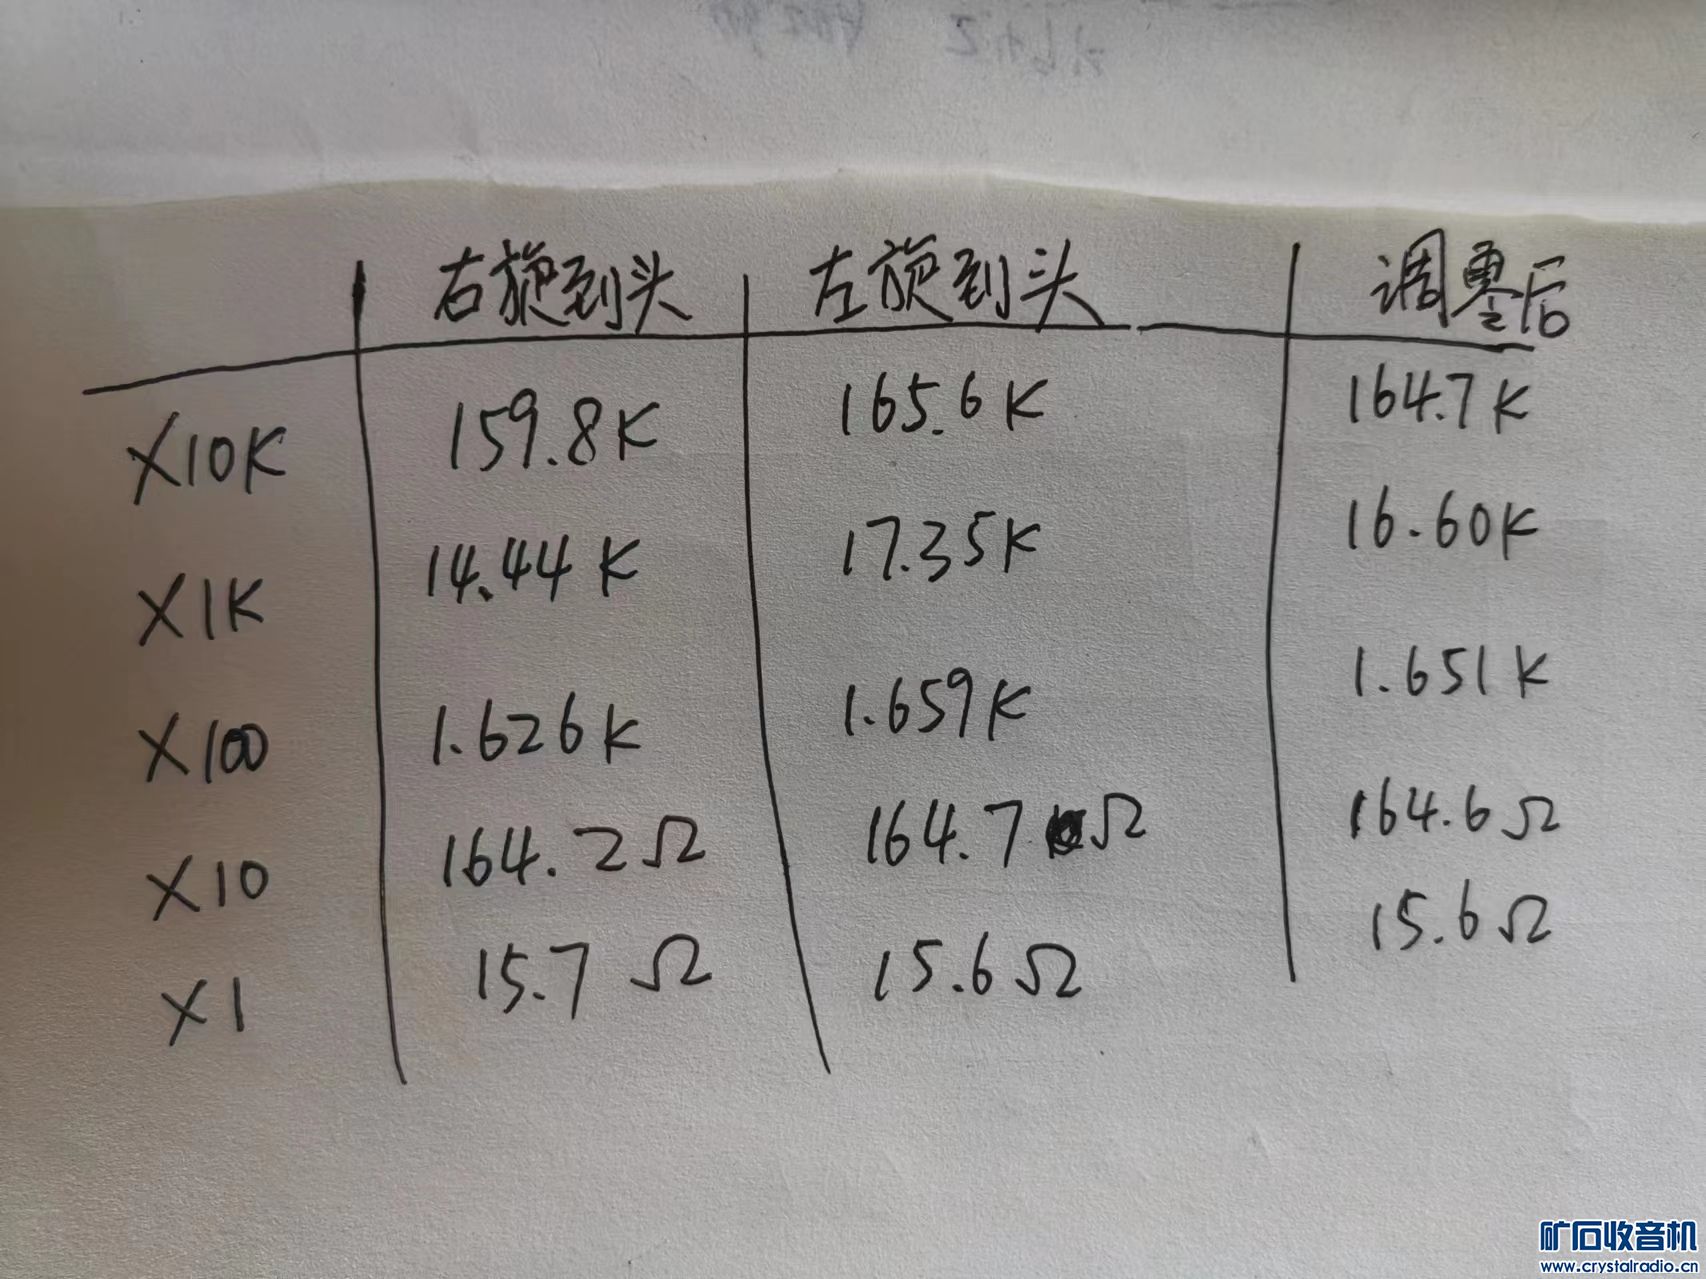 右旋到头 左旋到头 调零后
X10K 159.8K 165.6K 164.7K
X1K 14.44K 17.35K 16.60K
X100 1.626K 1.659K 1.651K
X10 164.2Ω 164.7Ω 164.6Ω
X1 15.7Ω 15.6Ω 15.6Ω
矿石收音机
www.crystalradio.cn